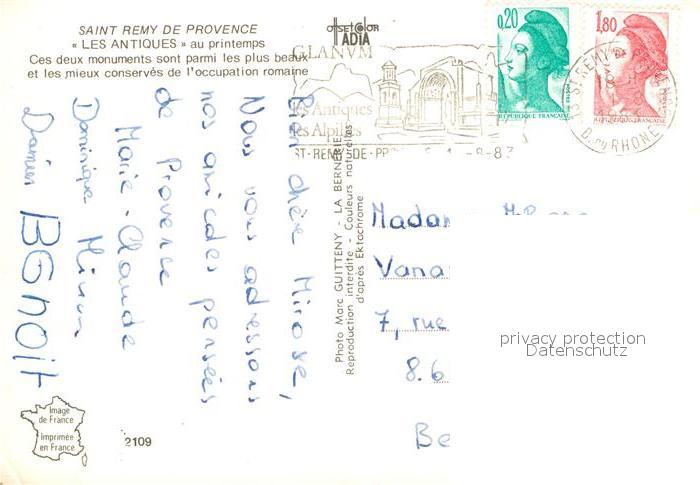 SAINT REMY DE PROVENCE
« LES ANTIQUES » au printemps
Ces deux monuments sont parmi les plus beaux
et les mieux conservés de l'occupation romaine
offsetcolor
IADIA
GLANVM
les Antiques
les Alpilles
ST-REMY-DE-PR
-8-83
0,20
REPUBLIQUE FRANÇAISE
1,80
REPUBLIQUE FRANÇAISE
13 ST REMY DE
B. DU RHONE
Bien chère Mirose,
Nous vous adressons
nos amicales pensées
de Provence
Marie-Claude
Dominique
Damien BENOIT
Photo Marc GUITTENY - LA BERNERIE
Reproduction interdite - Couleurs naturelles
d'après Ektachrome
Madam
Vana
7, rue
8.6
Be
privacy protection
Datenschutz
Image
de France
Imprimée
en France
2109